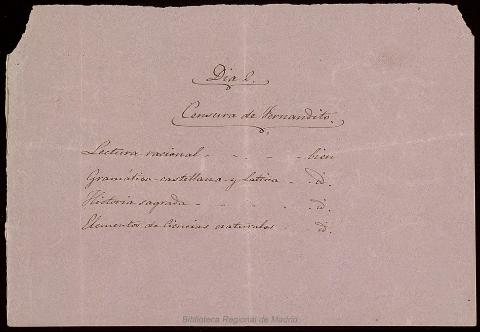 Dia 2.
Censura de Fernandito.
Lectura racional - - - - bien
Gramática castellana y latina - - id.
Historia sagrada - - - - - id.
Elementos de Ciencias naturales - - id.
Biblioteca Regional de Madrid